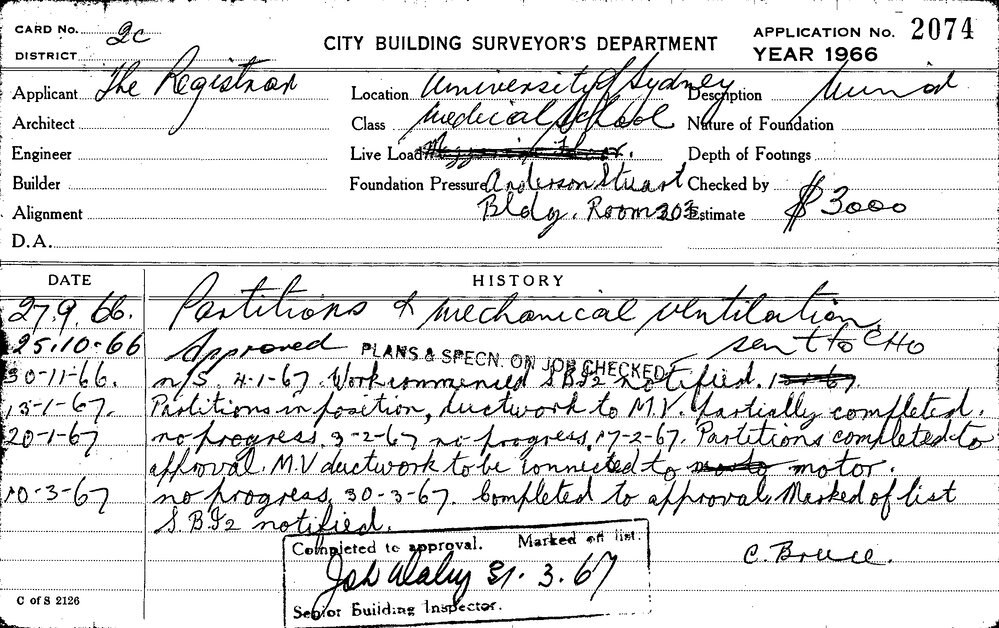 CARD No. 2c
CITY BUILDING SURVEYOR'S DEPARTMENT
APPLICATION No. 2074
DISTRICT
YEAR 1966
Applicant The Registrar Location University of Sydney Description
Architect Class Medical School Nature of Foundation
Engineer Live Load Depth of Footings
Builder Foundation Pressure Anderson Stuart Checked by
Alignment Bldg. Room 303 Estimate $3000
D.A.
DATE HISTORY
27.9.66. Partitions & mechanical ventilation.
25.10.66 Approved PLANS & SPECN. ON JOB CHECKED sent to CHO
30-11-66. n/S. 4-1-67. Work commenced S.B.I2 notified.
13-1-67. Partitions in position, ductwork to M.V. partially completed.
20-1-67 no progress. 3-2-67 no progress. 17-2-67. Partitions completed to
approval. M.V ductwork to be connected to motor.
10-3-67 no progress. 30-3-67. Completed to approval. Marked of list
S.B.I2 notified.
Completed to approval. Marked off list.
C. Bruce.
31.3.67
Senior Building Inspector.
C of S 2126